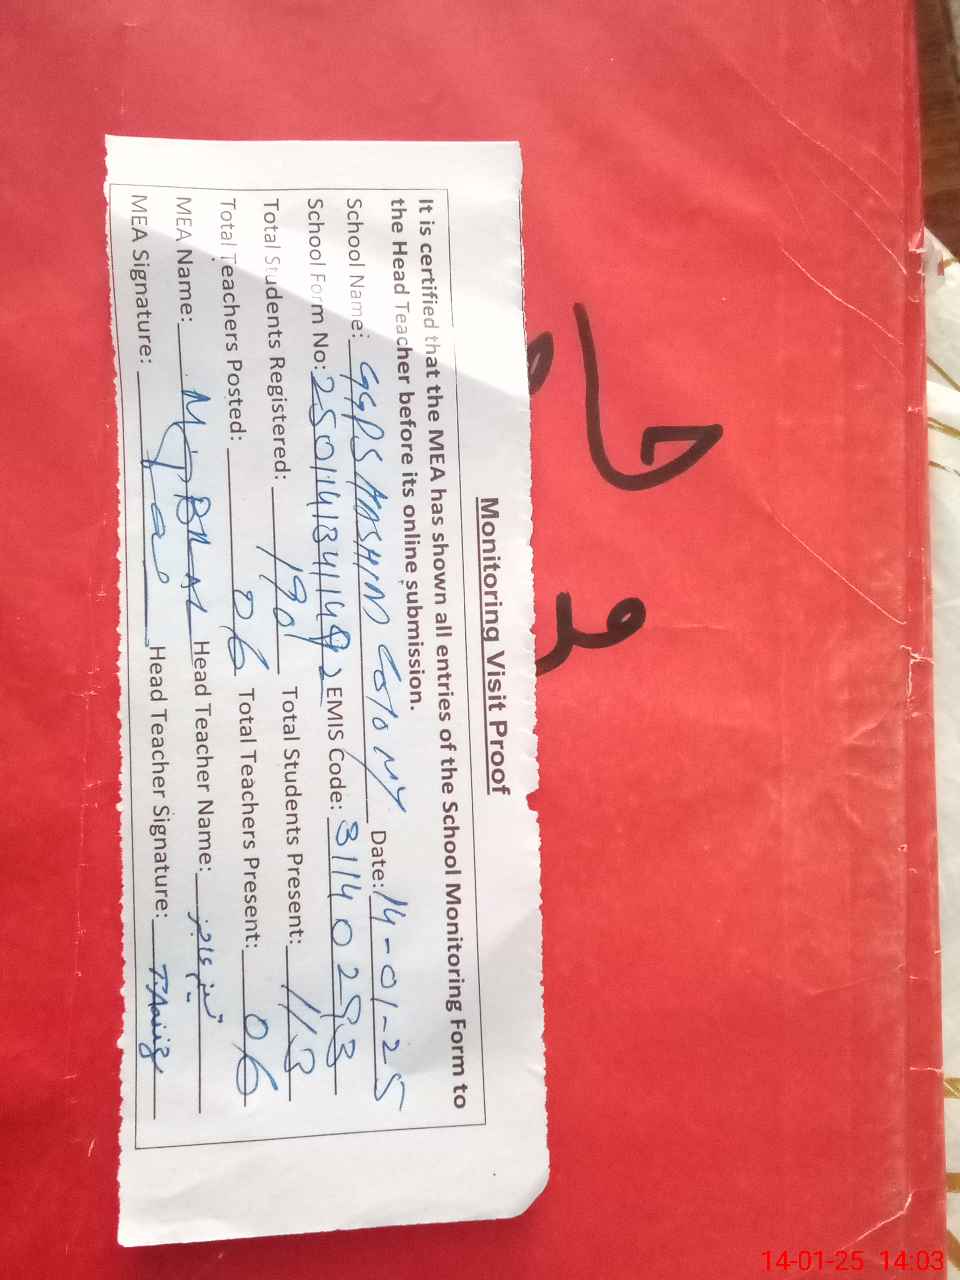 Monitoring Visit Proof
It is certified that the MEA has shown all entries of the School Monitoring Form to
the Head Teacher before its online submission.
School Name: GGPS HASHIM COLONY Date: 14-01-25
School Form No: EMIS Code: 31140293
Total Students Registered: 190 Total Students Present: 113
Total Teachers Posted: 06 Total Teachers Present: 06
MEA Name: M. BILAL Head Teacher Name:
MEA Signature: Head Teacher Signature:
14-01-25 14:03